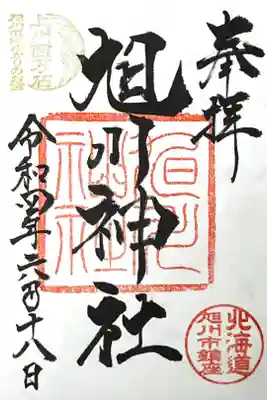 奉拝
旭川神社
旭川
神社
令和四年
月十八日
北海道
旭川市鎮座
上川百万石